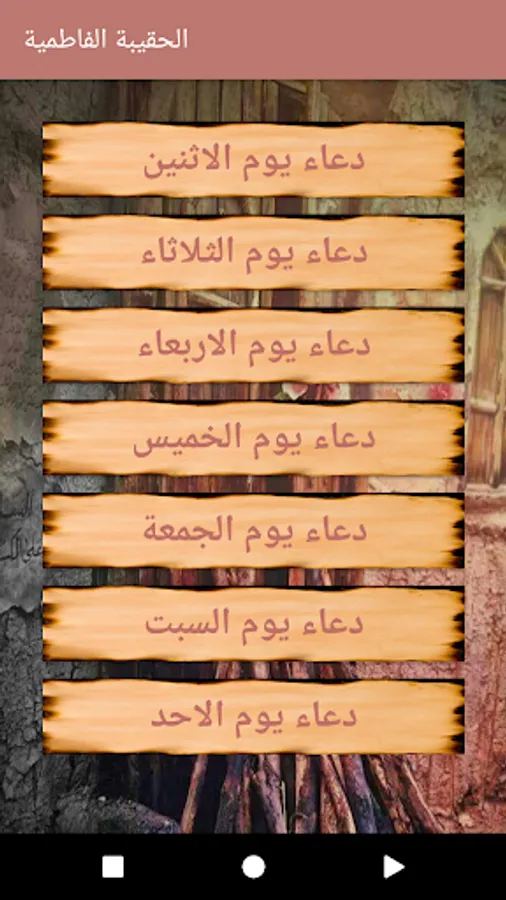 الحقيبة الفاطمية
دعاء يوم الاثنين
دعاء يوم الثلاثاء
دعاء يوم الاربعاء
دعاء يوم الخميس
دعاء يوم الجمعة
دعاء يوم السبت
دعاء يوم الاحد